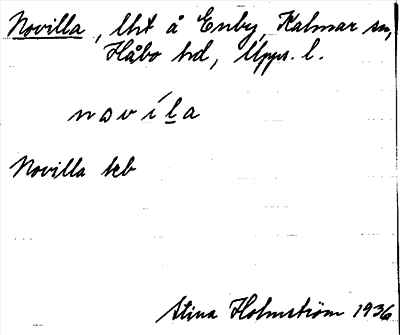 Novilla, lht å Enby, Kalmar sn,
Håbo hd, Upps. l.
novíl̲a
Novilla kb
Stina Holmström 1936